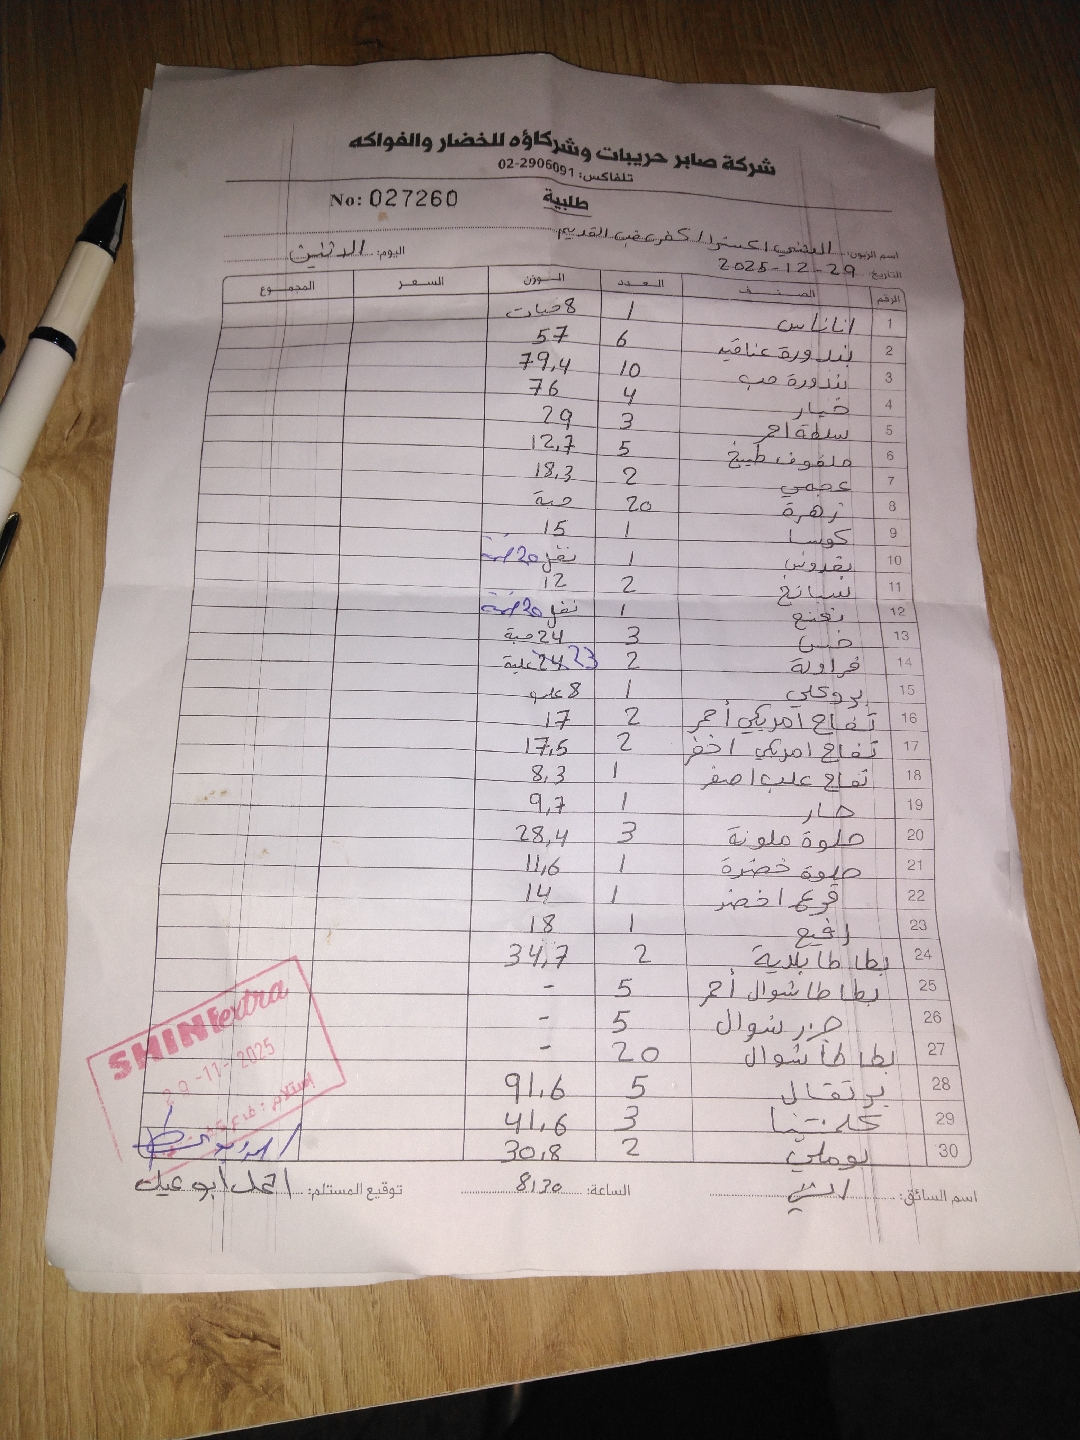 شركة صابر حريبات وشركاؤه للخضار والفواكه
تلفاكس: 02-2906091
No: 027260 طلبية
اسم الزبون: الشني اكسترا / كفر عقب القديم
التاريخ: 29-12-2025 اليوم: الاثنين
الرقم الصنف العدد الوزن السعر المجموع
1 اناناس 1 8 حبات
2 بندورة عناقيد 6 57
3 بندورة حب 10 79,4
4 خيار 4 76
5 سلطة احمر 3 29
6 ملفوف طبيخ 5 12,7
7 عجمي 2 18,3
8 زهرة 20 حبة
9 كوسا 1 15
10 بقدونس 1 نقل 20
11 سبانخ 2 12
12 نعنع 1 نقل 20
13 خس 3 24 حبة
14 فراولة 2 24 علبة 23
15 بروكلي 1 8 علب
16 تفاح امريكي أحمر 2 17
17 تفاح امريكي اخضر 2 17,5
18 تفاح علب اصفر 1 8,3
19 حار 1 9,7
20 حلوة ملونة 3 28,4
21 حلوة خضرة 1 11,6
22 قرع اخضر 1 14
23 رفيع 1 18
24 بطاطا بلدية 2 34,7
25 بطاطا شوال أحمر 5 -
26 جزر شوال 5 -
27 بطاطا شوال 20 -
28 برتقال 5 91,6
29 كلمنتينا 3 41,6
30 بوملي 2 30,8
SHINI extra
29-11-2025
إستلام:
اسم السائق: الساعة: 8:30 توقيع المستلم: